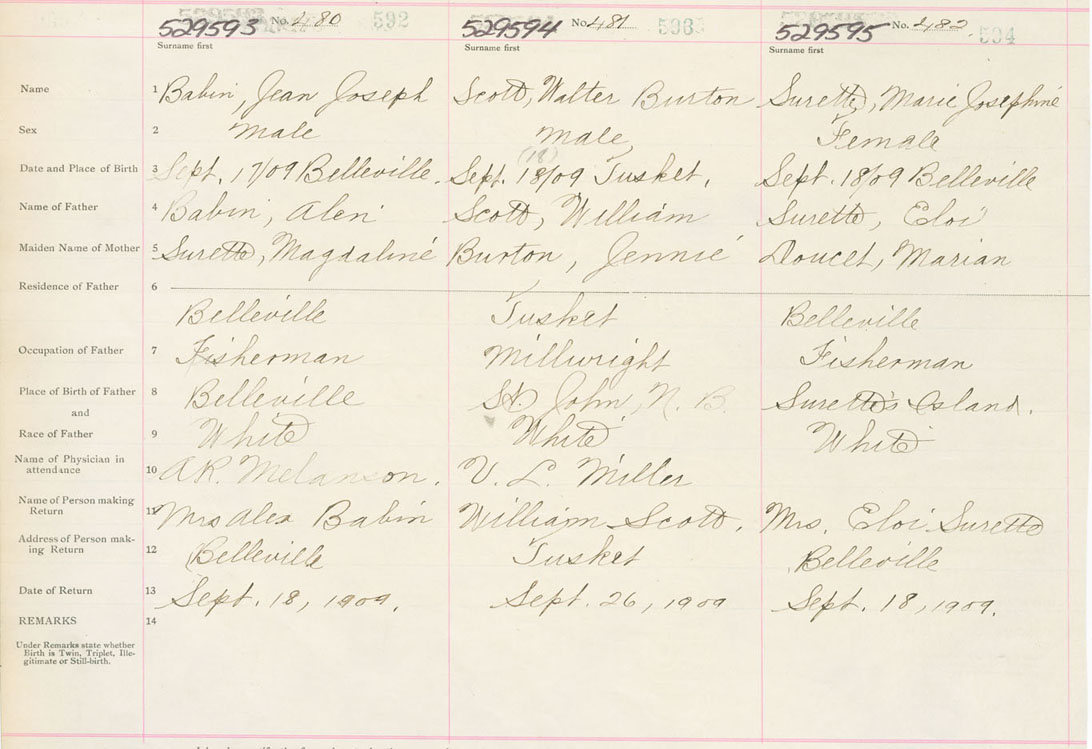 529593 No. 480 592 529594 No. 481 593 529595 No. 482 594
Surname first Surname first Surname first
Name 1 Babin, Jean Joseph Scott, Walter Burton Surette, Marie Josephine
Sex 2 Male Male Female
(18)
Date and Place of Birth 3 Sept. 17/09 Belleville. Sept. 18/09 Tusket. Sept. 18/09 Belleville
Name of Father 4 Babin, Alen Scott, William Surette, Eloi
Maiden Name of Mother 5 Surette, Magdaline Burton, Jennie Doucet, Marian
Residence of Father 6
Belleville Tusket Belleville
Occupation of Father 7 Fisherman Millwright Fisherman
Place of Birth of Father 8 Belleville St John, N. B. Surette's Island.
and
Race of Father 9 White White White
Name of Physician in
attendance 10 A.R. Melanson. V. L. Miller
Name of Person making
Return 11 Mrs Alex Babin William Scott. Mrs. Eloi Surette
Address of Person mak-
ing Return 12 Belleville Tusket Belleville
Date of Return 13 Sept. 18, 1909. Sept. 26, 1909 Sept. 18, 1909.
REMARKS 14
Under Remarks state whether
Birth is Twin, Triplet, Ille-
gitimate or Still-birth.